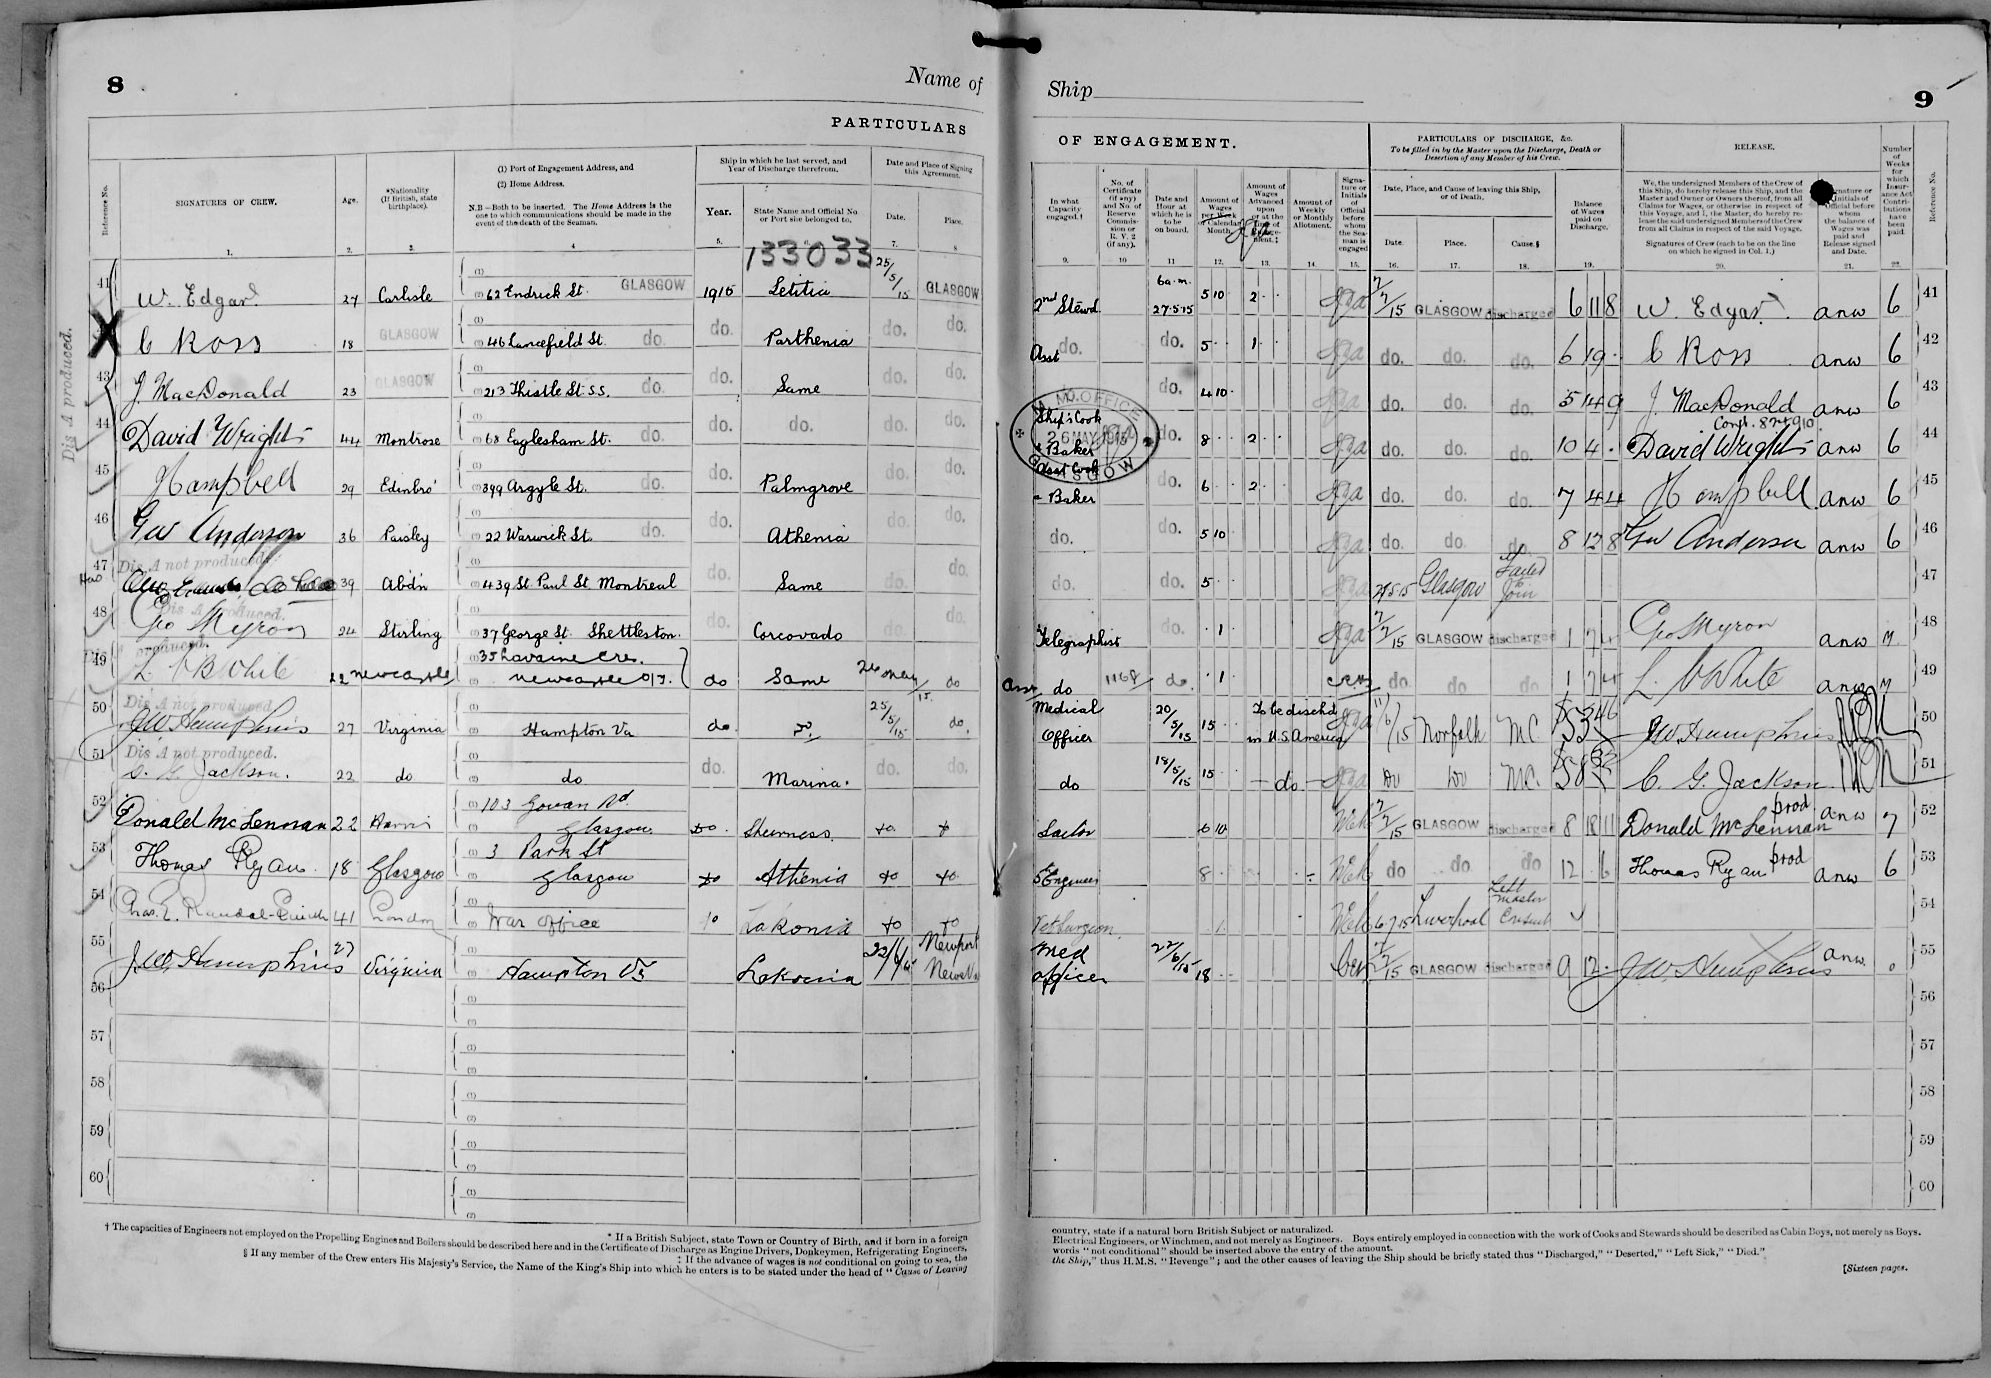 8
Name of
PARTICULARS
Reference No.
SIGNATURES OF CREW.
Age.
*Nationality
(If British, state
birthplace).
(1) Port of Engagement Address, and
(2) Home Address.
N.B—Both to be inserted. The Home Address is the
one to which communications should be made in the
event of the death of the Seaman.
Ship in which he last served, and
Year of Discharge therefrom.
Year.
State Name and Official No
or Port she belonged to.
Date and Place of Signing
this Agreement.
Date.
Place.
1. 2. 3. 4 5. 7. 8
133033
41 W. Edgar 27 Carlisle 62 Endrick St. GLASGOW 1915 Letitia 25/5/15 GLASGOW
C Ross 18 GLASGOW 46 Lancefield St. do. do. Parthenia do. do.
43 J. MacDonald 23 GLASGOW 213 Thistle St. S.S. do. do. Same do. do.
44 David Wright 44 Montrose 68 Eaglesham St. do. do. do. do. do.
45 Campbell 29 Edinbro' 399 Argyle St. do. do. Palmgrove do. do.
46 Geo Anderson 36 Paisley 22 Warwick St. do. do. Athenia do. do.
Dis A not produced.
47 39 Abdn 439 St Paul St Montreal do. Same do. do.
Dis A produced.
48 Geo Myron 24 Stirling 37 George St Shettleston. do. Corcovado do. do.
49 L. V B White 22 Newcastle 35 Lovaine Cres. Newcastle O/T. do Same 26 May/15. do
Dis A not produced
50 J W Humphries 27 Virginia Hampton Va do 25/5/15 do.
Dis A not produced.
51 C. G. Jackson. 22 do do do. Marina. do. do.
52 Donald McLennan 22 Harris 103 Govan Rd. Glasgow do. Sheerness do do
53 Thomas Ryan. 18 Glasgow 3 Park St Glasgow do Athenia do do
54 41 London War Office do Lakonia do do
55 J.W. Humphries 27 Virginia Hampton Va Lakonia 22/6/15 Newport News Va
56
57
58
59
60
Dis A produced.
† The capacities of Engineers not employed on the Propelling Engines and Boilers should be described here and in the Certificate of Discharge as Engine Drivers, Donkeymen, Refrigerating Engineers,
* If a British Subject, state Town or Country of Birth, and if born in a foreign
‡ If the advance of wages is not conditional on going to sea, the
§ If any member of the Crew enters His Majesty's Service, the Name of the King's Ship into which he enters is to be stated under the head of "Cause of Leaving
Ship
9
OF ENGAGEMENT.
PARTICULARS OF DISCHARGE, &c.
To be filled in by the Master upon the Discharge, Death or
Desertion of any Member of his Crew.
RELEASE.
In what
Capacity
engaged.†
No. of
Certificate
(if any)
and No. of
Reserve
Commis-
sion or
R. V. 2
(if any).
Date and
Hour at
which he is
to be
on board.
Amount of
Wages
per Week
or Calendar
Month.
Amount of
Wages
Advanced
upon
or at the
Amount of
Weekly
or Monthly
Allotment.
Signa-
ture or
Initials
of
Official
before
whom
the Sea-
man is
engaged
Date, Place, and Cause of leaving this Ship,
or of Death.
Date.
Place.
Cause.§
Balance
of Wages
paid on
Discharge.
We, the undersigned Members of the Crew of
this Ship, do hereby release this Ship, and the
Master and Owner or Owners thereof, from all
Claims for Wages, or otherwise in respect of
this Voyage, and I, the Master, do hereby re-
lease the said undersigned Members of the Crew
from all Claims in respect of the said Voyage.
Signatures of Crew (each to be on the line
on which he signed in Col. 1.)
Initials of
Official before
whom
the balance of
Wages was
paid and
Release signed
and Date.
Number
of
Weeks
for
which
Insur-
ance Act
Contri-
butions
have
been
paid.
Reference No.
9. 10 11 12. 13. 14. 15. 16. 17. 18. 19. 20. 21. 22.
2nd Stewd. 6 a.m. 27.5.15 5 10 2 7/7/15 GLASGOW discharged 6 11 8 W. Edgar anw 6 41
Asst do. do. 5 1 do. do. do. 6 19 C Ross anw 6 42
do. 4 10 do. do. do. 5 14 9 J. MacDonald anw 6 43
M.M. OFFICE 26 MAY 1915 GLASGOW
Ship's Cook & Baker do. 8 2 do. do. do. 10 4 David Wright anw 6 44
Asst Cook & Baker do. 6 2 do. do. do. 7 4 4 Campbell anw 6 45
do. do. 5 10 do. do. do. 8 12 8 Geo Anderson anw 6 46
do. do. 5 27.5.15 Glasgow Failed to Join 47
Telegraphist do. 1 7/7/15 GLASGOW discharged 1 7 Geo Myron anw 48
Asst do 1168 do. 1 do do do 1 7 L. V White anw 49
Medical Officer 20/5/15 15 To be dischd in U.S. America 11/6/15 Norfolk MC J W Humphries 50
do 18/5/15 15 do do do MC. C. G. Jackson 51
Sailor 6 10 7/7/15 GLASGOW discharged 8 18 11 Donald McLennan prod anw 7 52
5 Engineer 8 do do do 12 6 Thomas Ryan prod anw 6 53
Vet Surgeon 1 6 7 15 Liverpool Left Master Consent 54
Med officer 22/6/15 18 7/7/15 GLASGOW discharged 9 12 J W. Humphries anw. 0 55
56
57
58
59
60
country, state if a natural born British Subject or naturalized.
Electrical Engineers, or Winchmen, and not merely as Engineers. Boys entirely employed in connection with the work of Cooks and Stewards should be described as Cabin Boys, not merely as Boys.
words "not conditional" should be inserted above the entry of the amount.
the Ship," thus H.M.S. "Revenge"; and the other causes of leaving the Ship should be briefly stated thus "Discharged," "Deserted," "Left Sick," "Died."
[Sixteen pages.